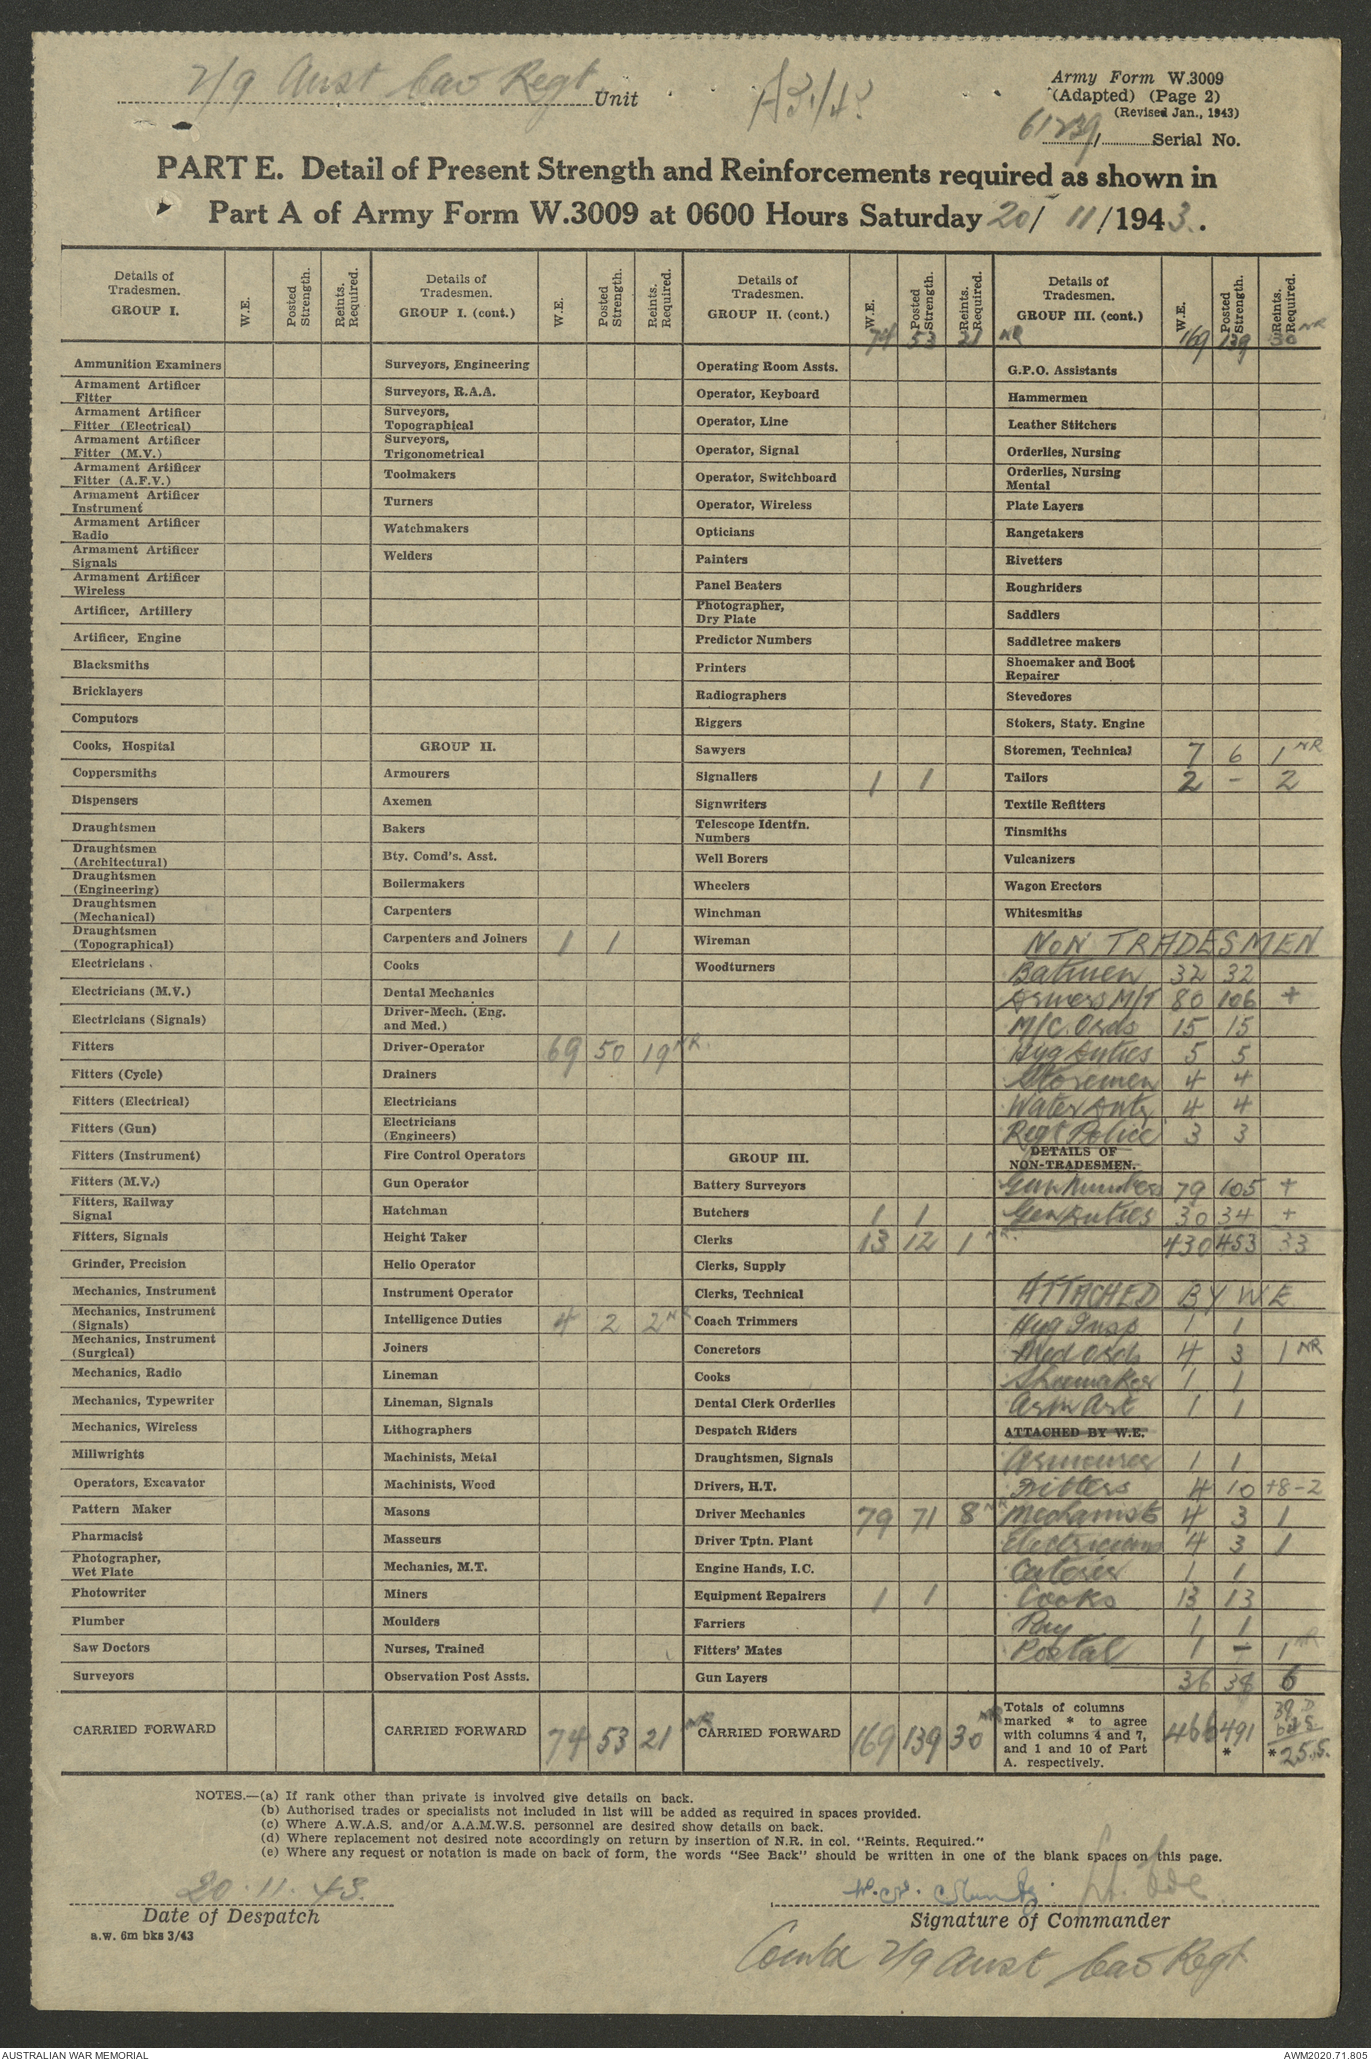 2/9 Aust Cav Regt Unit
Army Form W.3009
(Adapted) (Page 2)
(Revised Jan., 1943)
61239/ Serial No.
PART E. Detail of Present Strength and Reinforcements required as shown in
Part A of Army Form W.3009 at 0600 Hours Saturday 20/ 11/1943.
Details of Tradesmen. GROUP I. W.E. Posted Strength. Reints. Required.
Ammunition Examiners
Armament Artificer Fitter
Armament Artificer Fitter (Electrical)
Armament Artificer Fitter (M.V.)
Armament Artificer Fitter (A.F.V.)
Armament Artificer Instrument
Armament Artificer Radio
Armament Artificer Signals
Armament Artificer Wireless
Artificer, Artillery
Artificer, Engine
Blacksmiths
Bricklayers
Computors
Cooks, Hospital
Coppersmiths
Dispensers
Draughtsmen
Draughtsmen (Architectural)
Draughtsmen (Engineering)
Draughtsmen (Mechanical)
Draughtsmen (Topographical)
Electricians
Electricians (M.V.)
Electricians (Signals)
Fitters
Fitters (Cycle)
Fitters (Electrical)
Fitters (Gun)
Fitters (Instrument)
Fitters (M.V.)
Fitters, Railway Signal
Fitters, Signals
Grinder, Precision
Mechanics, Instrument
Mechanics, Instrument (Signals)
Mechanics, Instrument (Surgical)
Mechanics, Radio
Mechanics, Typewriter
Mechanics, Wireless
Millwrights
Operators, Excavator
Pattern Maker
Pharmacist
Photographer, Wet Plate
Photowriter
Plumber
Saw Doctors
Surveyors
CARRIED FORWARD
Details of Tradesmen. GROUP I. (cont.) W.E. Posted Strength. Reints. Required.
Surveyors, Engineering
Surveyors, R.A.A.
Surveyors, Topographical
Surveyors, Trigonometrical
Toolmakers
Turners
Watchmakers
Welders
GROUP II.
Armourers
Axemen
Bakers
Bty. Comd's. Asst.
Boilermakers
Carpenters
Carpenters and Joiners 1 1
Cooks
Dental Mechanics
Driver-Mech. (Eng. and Med.)
Driver-Operator 69 50 19 NR.
Drainers
Electricians
Electricians (Engineers)
Fire Control Operators
Gun Operator
Hatchman
Height Taker
Helio Operator
Instrument Operator
Intelligence Duties 4 2 2 NR
Joiners
Lineman
Lineman, Signals
Lithographers
Machinists, Metal
Machinists, Wood
Masons
Masseurs
Mechanics, M.T.
Miners
Moulders
Nurses, Trained
Observation Post Assts.
CARRIED FORWARD 74 53 21 NR
Details of Tradesmen. GROUP II. (cont.) W.E. Posted Strength. Reints. Required.
74 53 21 NR
Operating Room Assts.
Operator, Keyboard
Operator, Line
Operator, Signal
Operator, Switchboard
Operator, Wireless
Opticians
Painters
Panel Beaters
Photographer, Dry Plate
Predictor Numbers
Printers
Radiographers
Riggers
Sawyers
Signallers 1 1
Signwriters
Telescope Identfn. Numbers
Well Borers
Wheelers
Winchman
Wireman
Woodturners
GROUP III.
Battery Surveyors
Butchers 1 1
Clerks 13 12 1 NR.
Clerks, Supply
Clerks, Technical
Coach Trimmers
Concretors
Cooks
Dental Clerk Orderlies
Despatch Riders
Draughtsmen, Signals
Drivers, H.T.
Driver Mechanics 79 71 8 NR
Driver Tptn. Plant
Engine Hands, I.C.
Equipment Repairers 1 1
Farriers
Fitters' Mates
Gun Layers
CARRIED FORWARD 169 139 30 NR
Details of Tradesmen. GROUP III. (cont.) W.E. Posted Strength. Reints. Required.
169 139 30 NR
G.P.O. Assistants
Hammermen
Leather Stitchers
Orderlies, Nursing
Orderlies, Nursing Mental
Plate Layers
Rangetakers
Rivetters
Roughriders
Saddlers
Saddletree makers
Shoemaker and Boot Repairer
Stevedores
Stokers, Staty. Engine
Storemen, Technical 7 6 1 NR
Tailors 2 - 2
Textile Refitters
Tinsmiths
Vulcanizers
Wagon Erectors
Whitesmiths
NON TRADESMEN
Batmen 32 32
Drivers M/T 80 106 +
M/C. Ords 15 15
Hyg Duties 5 5
Storemen 4 4
Water Duty 4 4
Regt Police 3 3
DETAILS OF NON-TRADESMEN.
Gun Numbers 79 105 +
Gen Duties 30 34 +
430 453 33
ATTACHED BY WE
Hyg Insp 1 1
Med Ords 4 3 1 NR
Shoemaker 1 1
Arm Art 1 1
ATTACHED BY W.E.
Armourer 1 1
Fitters 4 10 +8-2
Mechanists 4 3 1
Electricians 4 3 1
Caterer 1 1
Cooks 13 13
Pay 1 1
Postal 1 - 1 NR
36 38 6
Totals of columns marked * to agree with columns 4 and 7, and 1 and 10 of Part A. respectively. 466 491 *
39 D
64 S
* 25 S.
NOTES.—(a) If rank other than private is involved give details on back.
(b) Authorised trades or specialists not included in list will be added as required in spaces provided.
(c) Where A.W.A.S. and/or A.A.M.W.S. personnel are desired show details on back.
(d) Where replacement not desired note accordingly on return by insertion of N.R. in col. "Reints. Required."
(e) Where any request or notation is made on back of form, the words "See Back" should be written in one of the blank spaces on this page.
20.11.43.
Date of Despatch
a.w. 6m bks 3/43
Signature of Commander
Comd 2/9 Aust Cav Regt
AUSTRALIAN WAR MEMORIAL
AWM2020.71.805